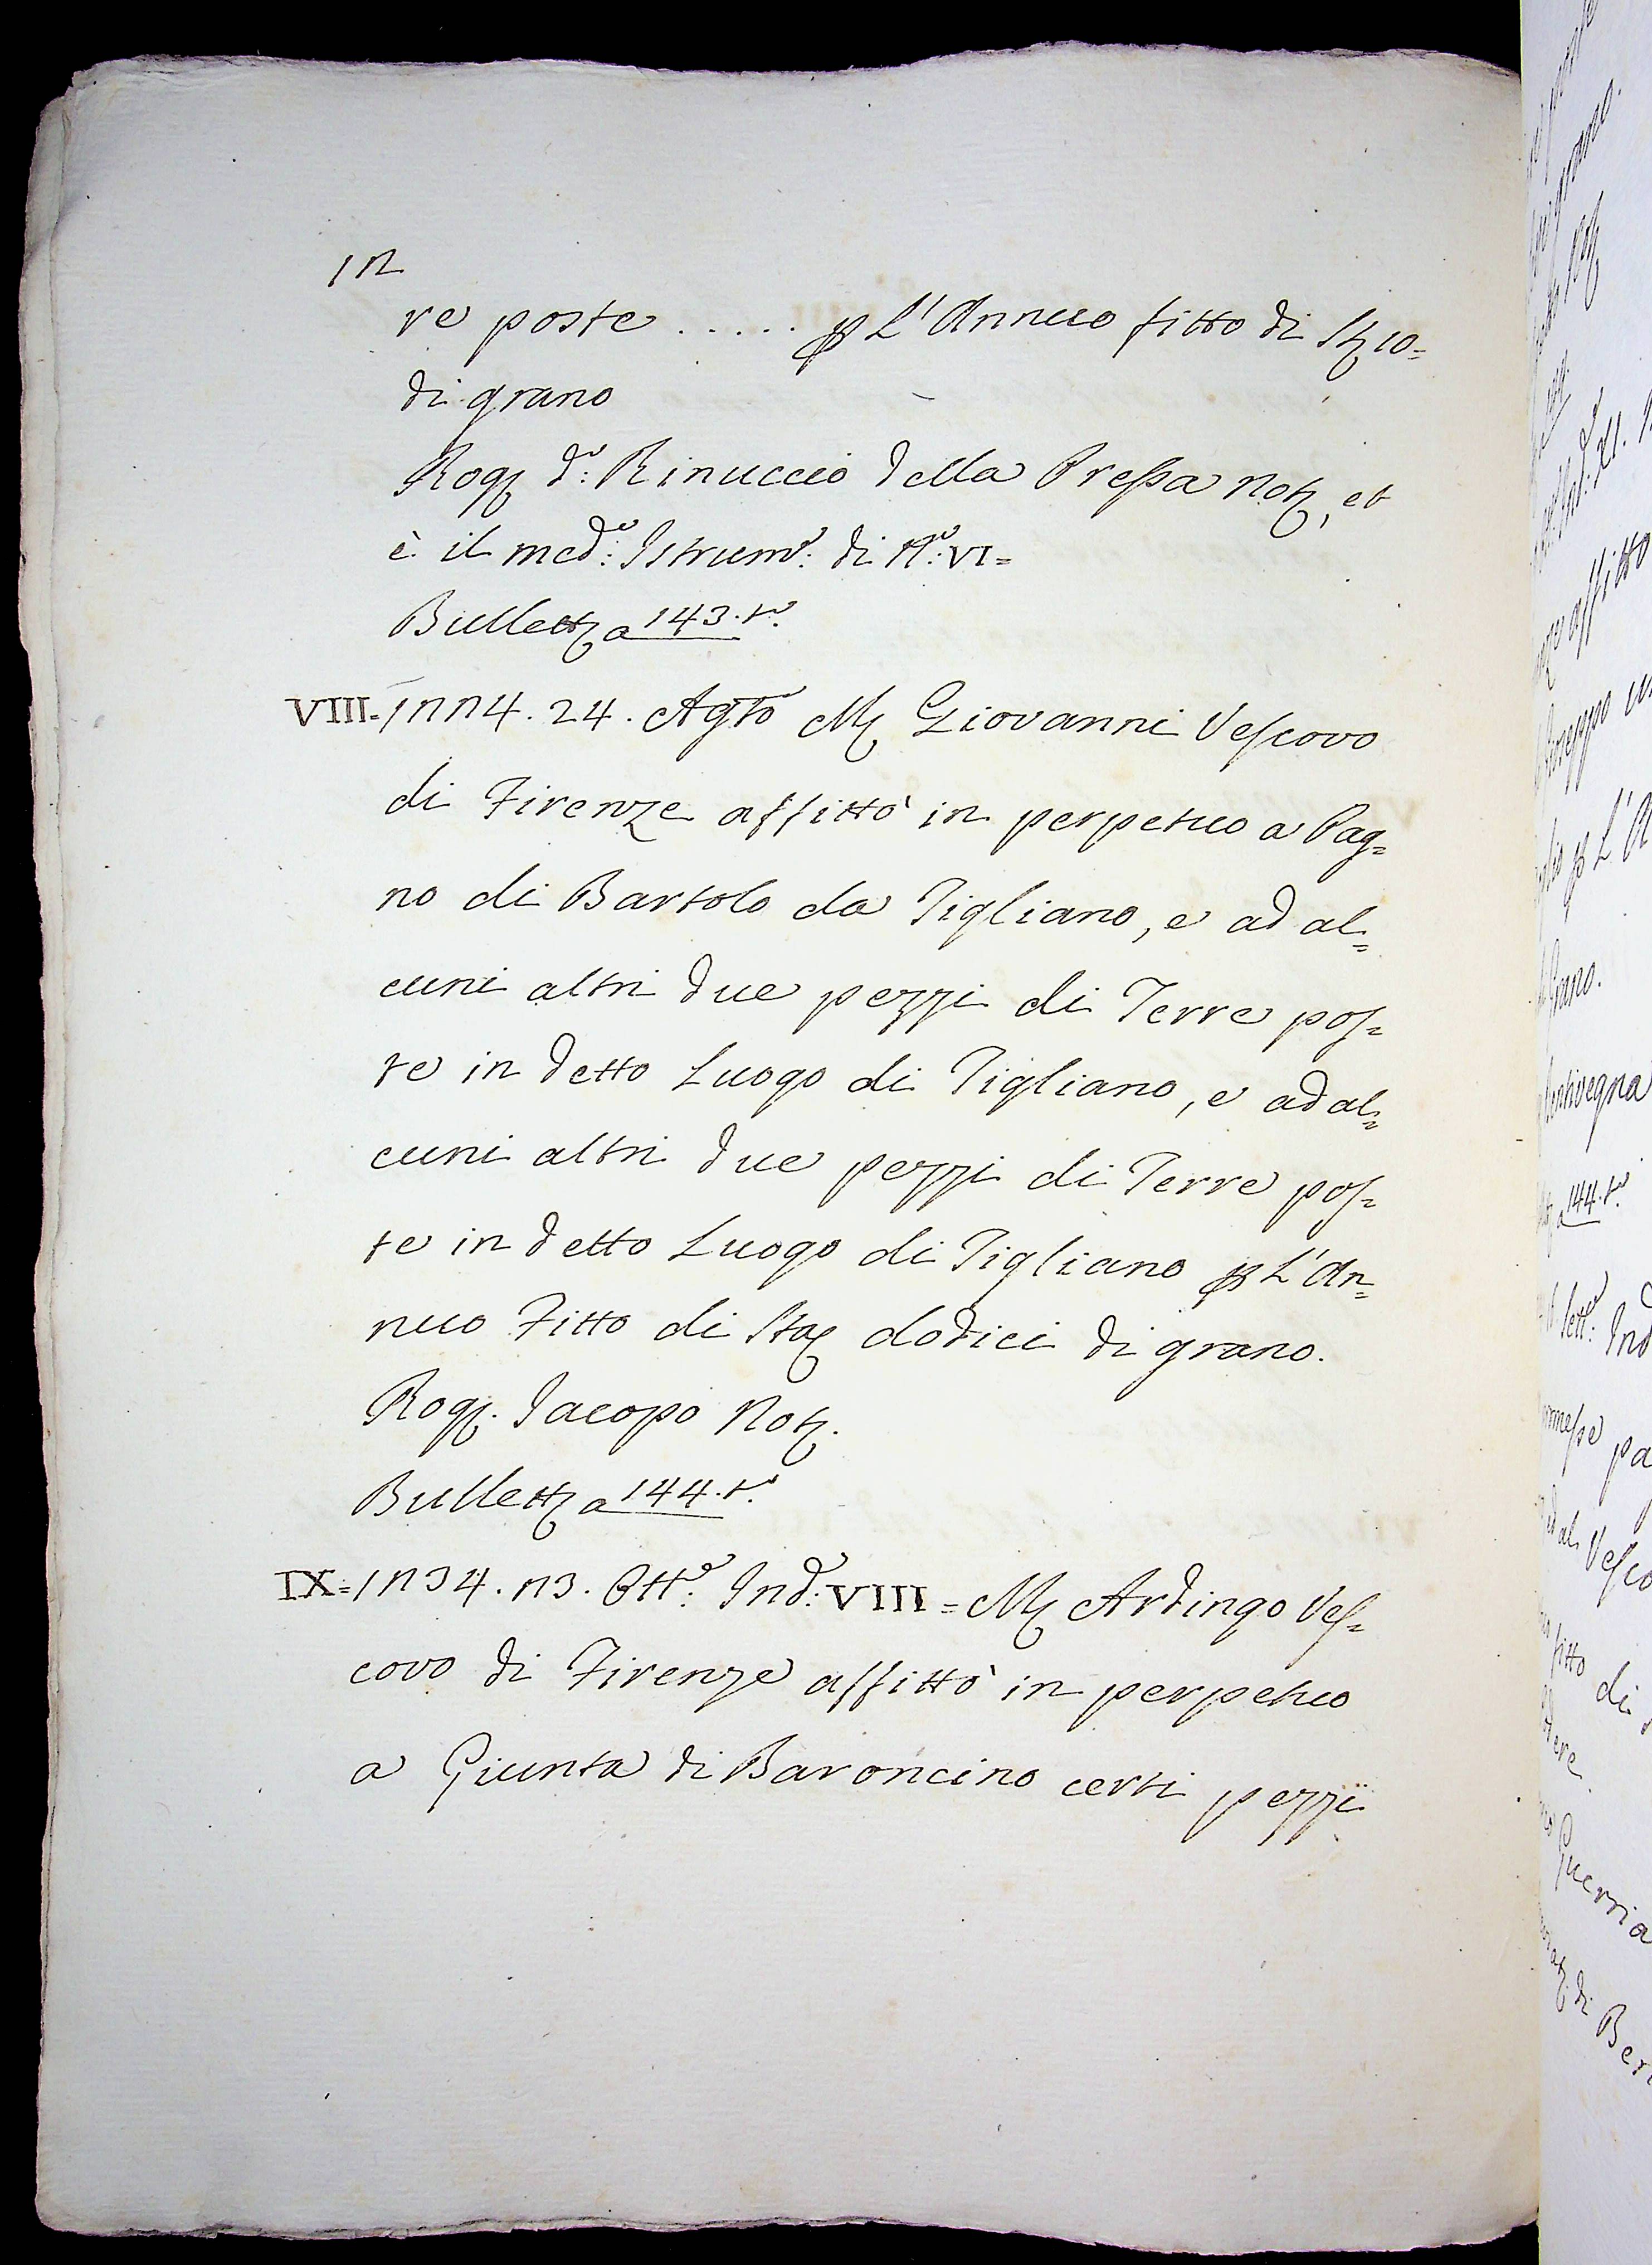 12
re poste ..... p L'Annuo fitto di St 10=
di grano
Rog d.º: Rinuccio della Pressa Not, et
è il med.º: Istrum.º: di N.º: VI=
Bullett a 143. tº:
VIII. 1224. 24. Agto M Giovanni Vescovo
di Firenze affittò in perpetuo a Pag=
no di Bartolo da Tigliano, e ad al=
cuni altri due pezzi di Terre pos=
te in detto Luogo di Tigliano, e ad al=
cuni altri due pezzi di Terre pos=
te in detto Luogo di Tigliano p L'An=
nuo Fitto di Sta dodici di grano.
Rog. Jacopo Not.
Bullett a 144. tº:
IX= 1234. 23. Ott.e: Ind.e: VIII= M Ardingo Ves=
covo di Firenze affittò in perpetuo
a Giunta di Baroncino certi pezzi